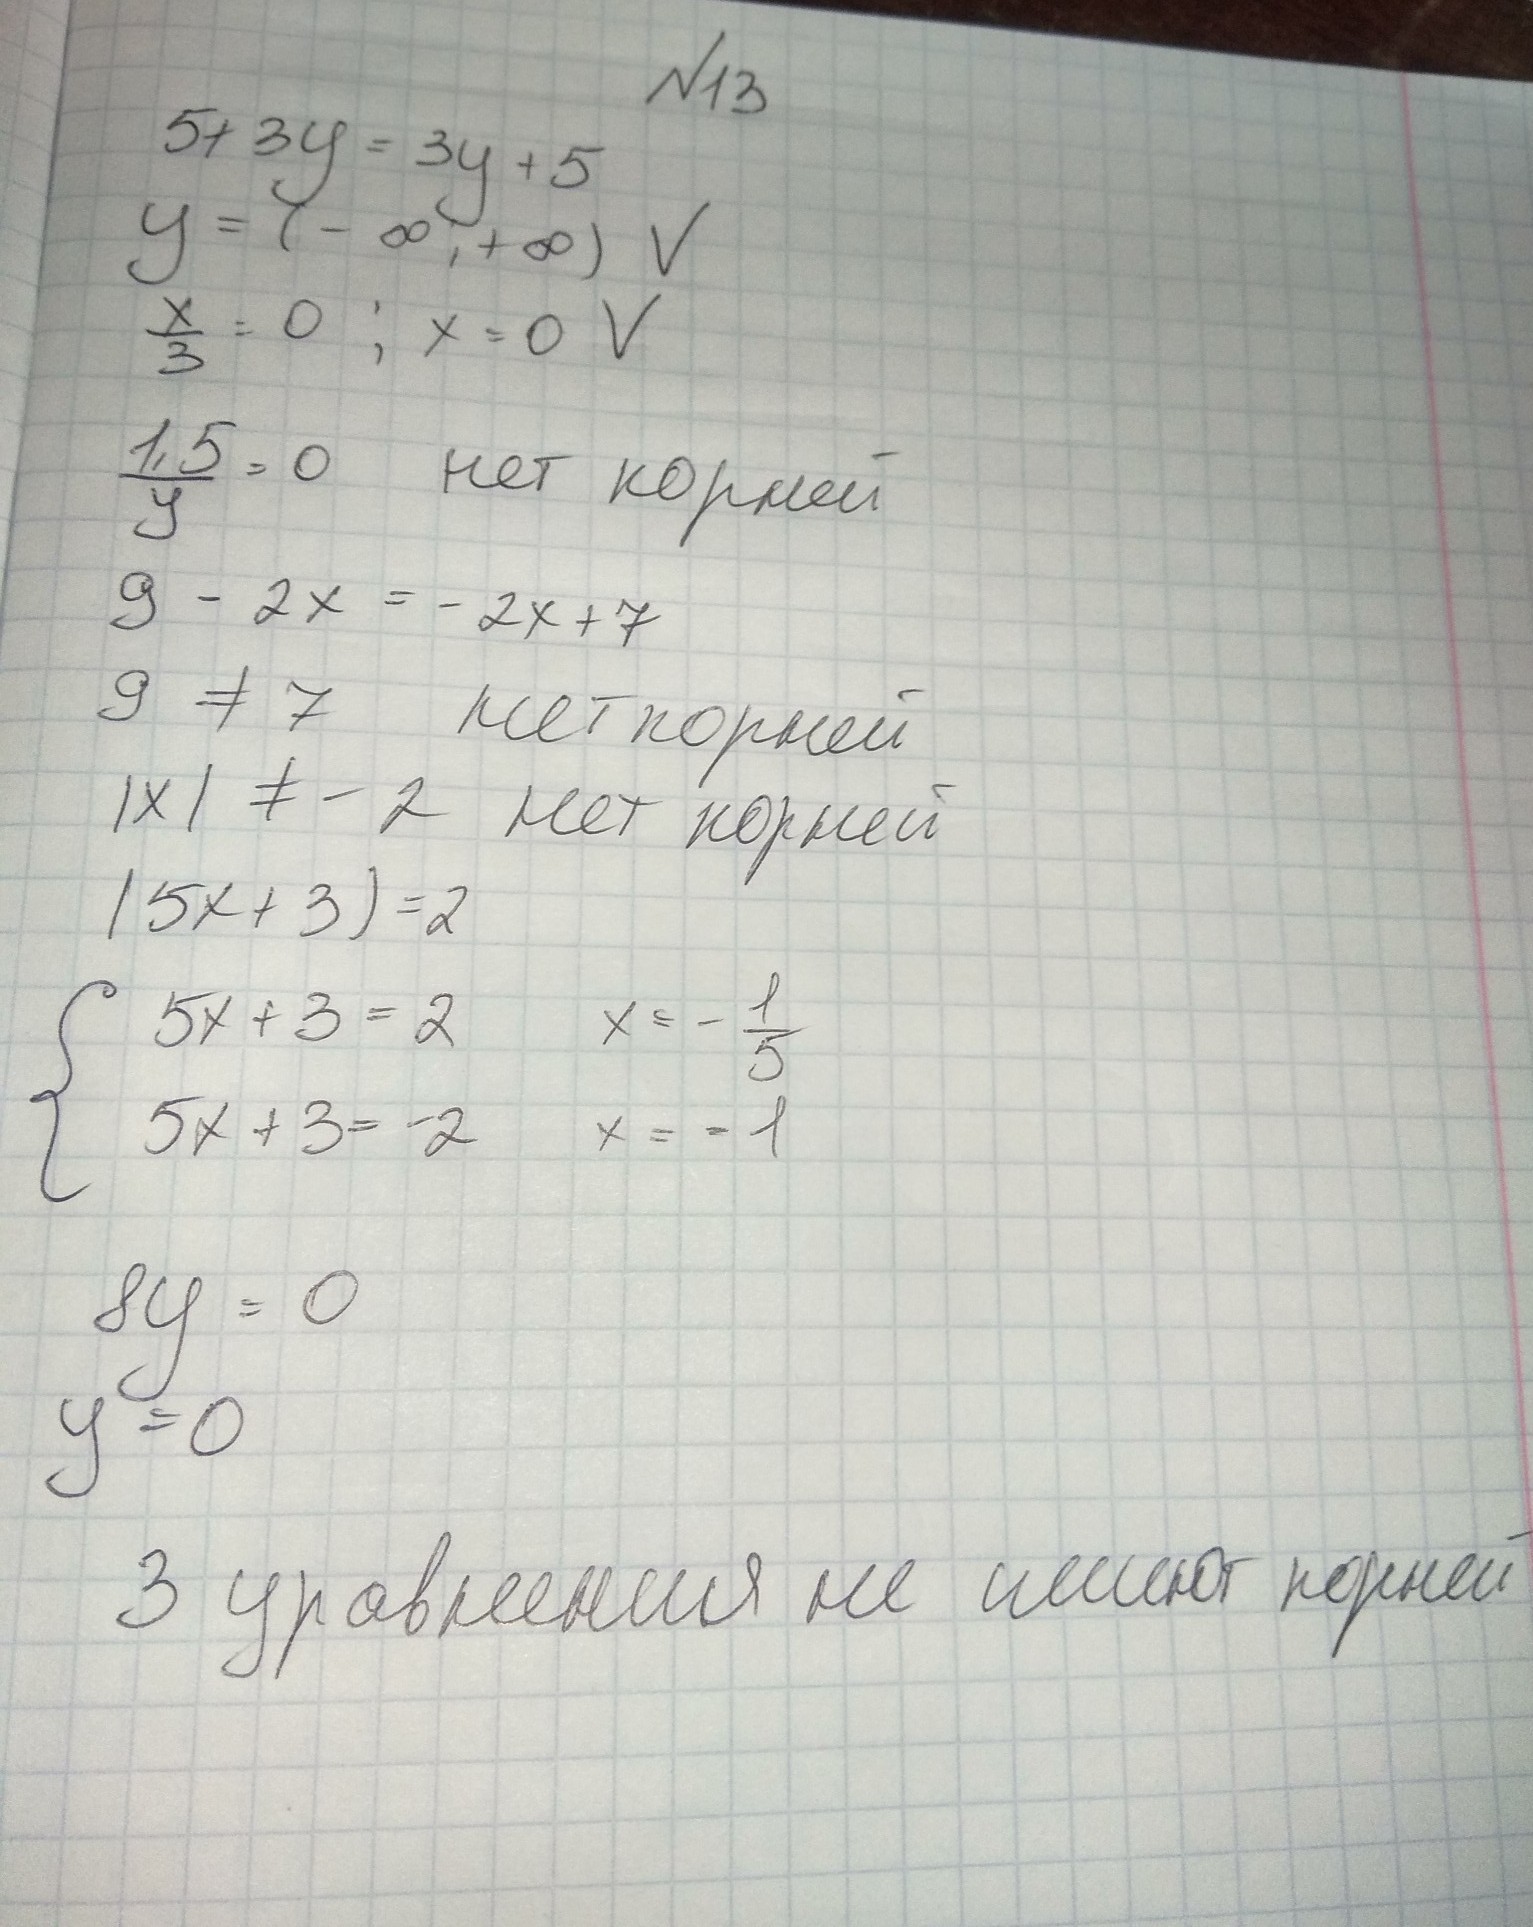 №13
5+3y=3y+5
y=(-∞;+∞) V
x/3=0; x=0 V
1,5/y=0 нет корней
9-2x=-2x+7
9≠7 нет корней
|x|≠-2 нет корней
|5x+3|=2
{ 5x+3=2 x=-1/5
5x+3=-2 x=-1
8y=0
y=0
3 уравнения не имеют корней